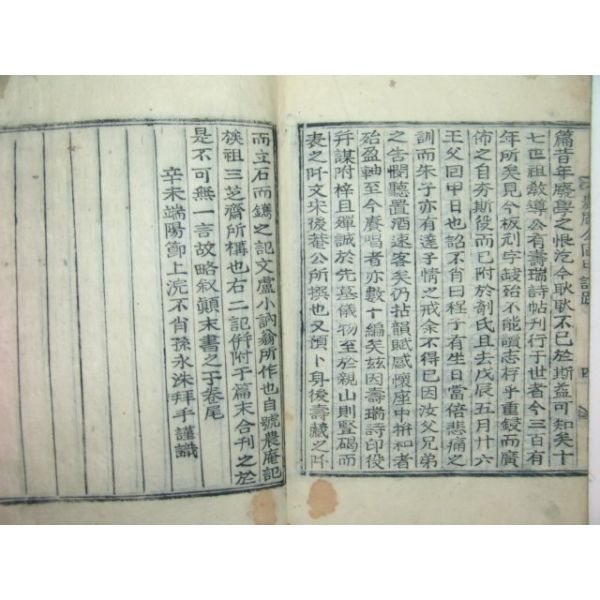 篇昔年廢學之恨迄今耿耿不已於斯益可知矣十
七世祖敎導公有壽瑞詩帖刊行于世者今三百有
年所矣見今板刓字缺殆不能讀志存乎重鋟而廣
佈之自夯斯役而已附於剞氏且去戊辰五月廿六
王父回甲日也詔不肖曰程子有生日當倍悲痛之
訓而朱子亦有達子情之戒余不得已因汝父兄弟
之告憪聽置酒速客矣仍拈韻賦感懷座中拚和者
殆盈軸至今賡唱者亦數十編矣玆因壽瑞詩印役
幷謀附梓且殫誠於先墓儀物至於親山則竪碣而
表之阡文宋後菴公所撰也又須卜身後壽藏之阡
而立石而鐫之記文盧小訥翁所作也自號農庵記
族祖三芝齋所構也右二記倂附于篇末合刊之於
是不可無一言故略叙顚末書之于卷尾
辛未端陽節上浣不肖孫永洙拜手謹識